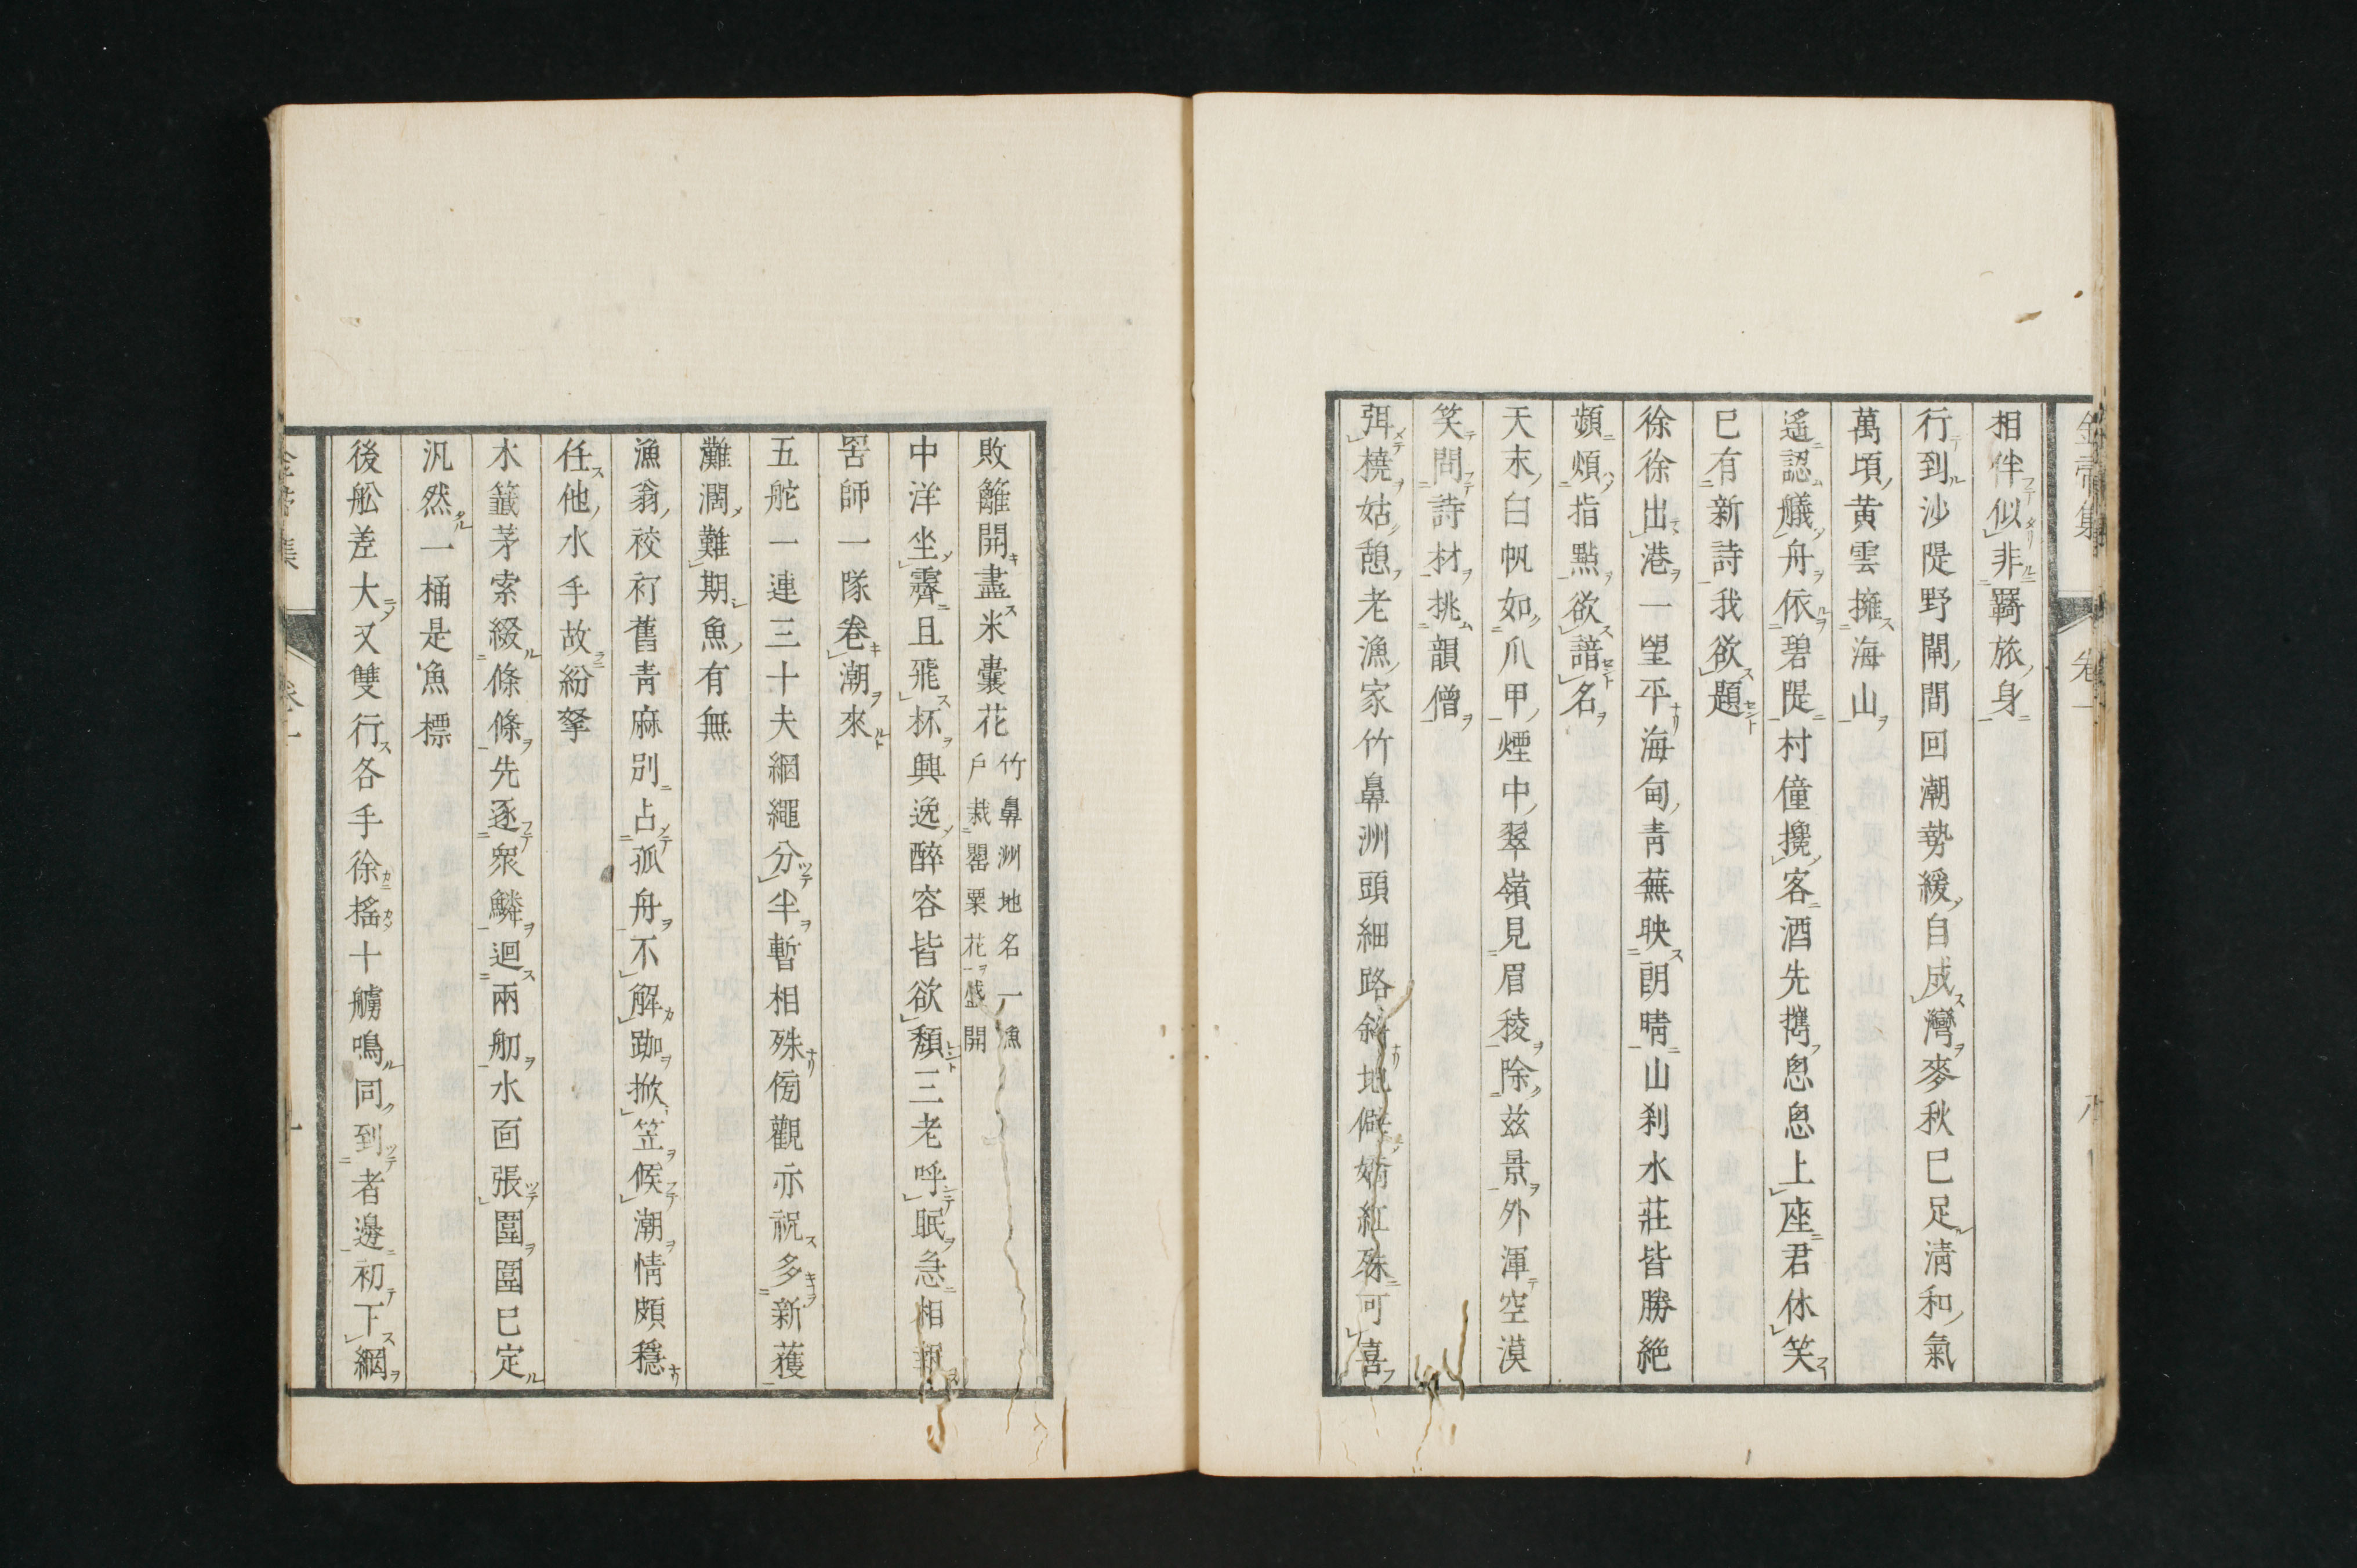 相伴似非羇旅身
行到沙隄野閘間回潮勢緩自成灣麥秋已足淸和氣
萬頃黄雲擁海山
遙認艤舟依碧隄村僮攙客酒先携怱怱上座君休笑
已有新詩我欲題
徐徐出港一望平海甸青蕪映朗晴山刹水莊皆勝絶
頻煩指點欲諳名
天末白帆如爪甲煙中翠嶺見眉稜除茲景外渾空漠
笑問詩材挑韻僧
弭橈姑憩老漁家竹鼻洲頭細路斜地僻嬌紅殊可喜
敗籬開盡米囊花竹鼻洲地名一漁
戶栽罌粟花盛開
中洋坐霽且飛杯興逸醉容皆欲頹三老呼眠急相報
罟師一隊卷潮來
五舵一連三十夫網繩分半暫相殊傍觀亦祝多新獲
灘濶難期魚有無
漁翁袯袯舊靑麻別占孤舟不解跏掀笠候潮情頗穩
任他水手故紛拏
木籤茅索綴條條先逐衆鱗迴兩舠水面張圍圍已定
汎然一桶是魚標
後舩差大又雙行各手徐搖十艣鳴同到者邊初下網